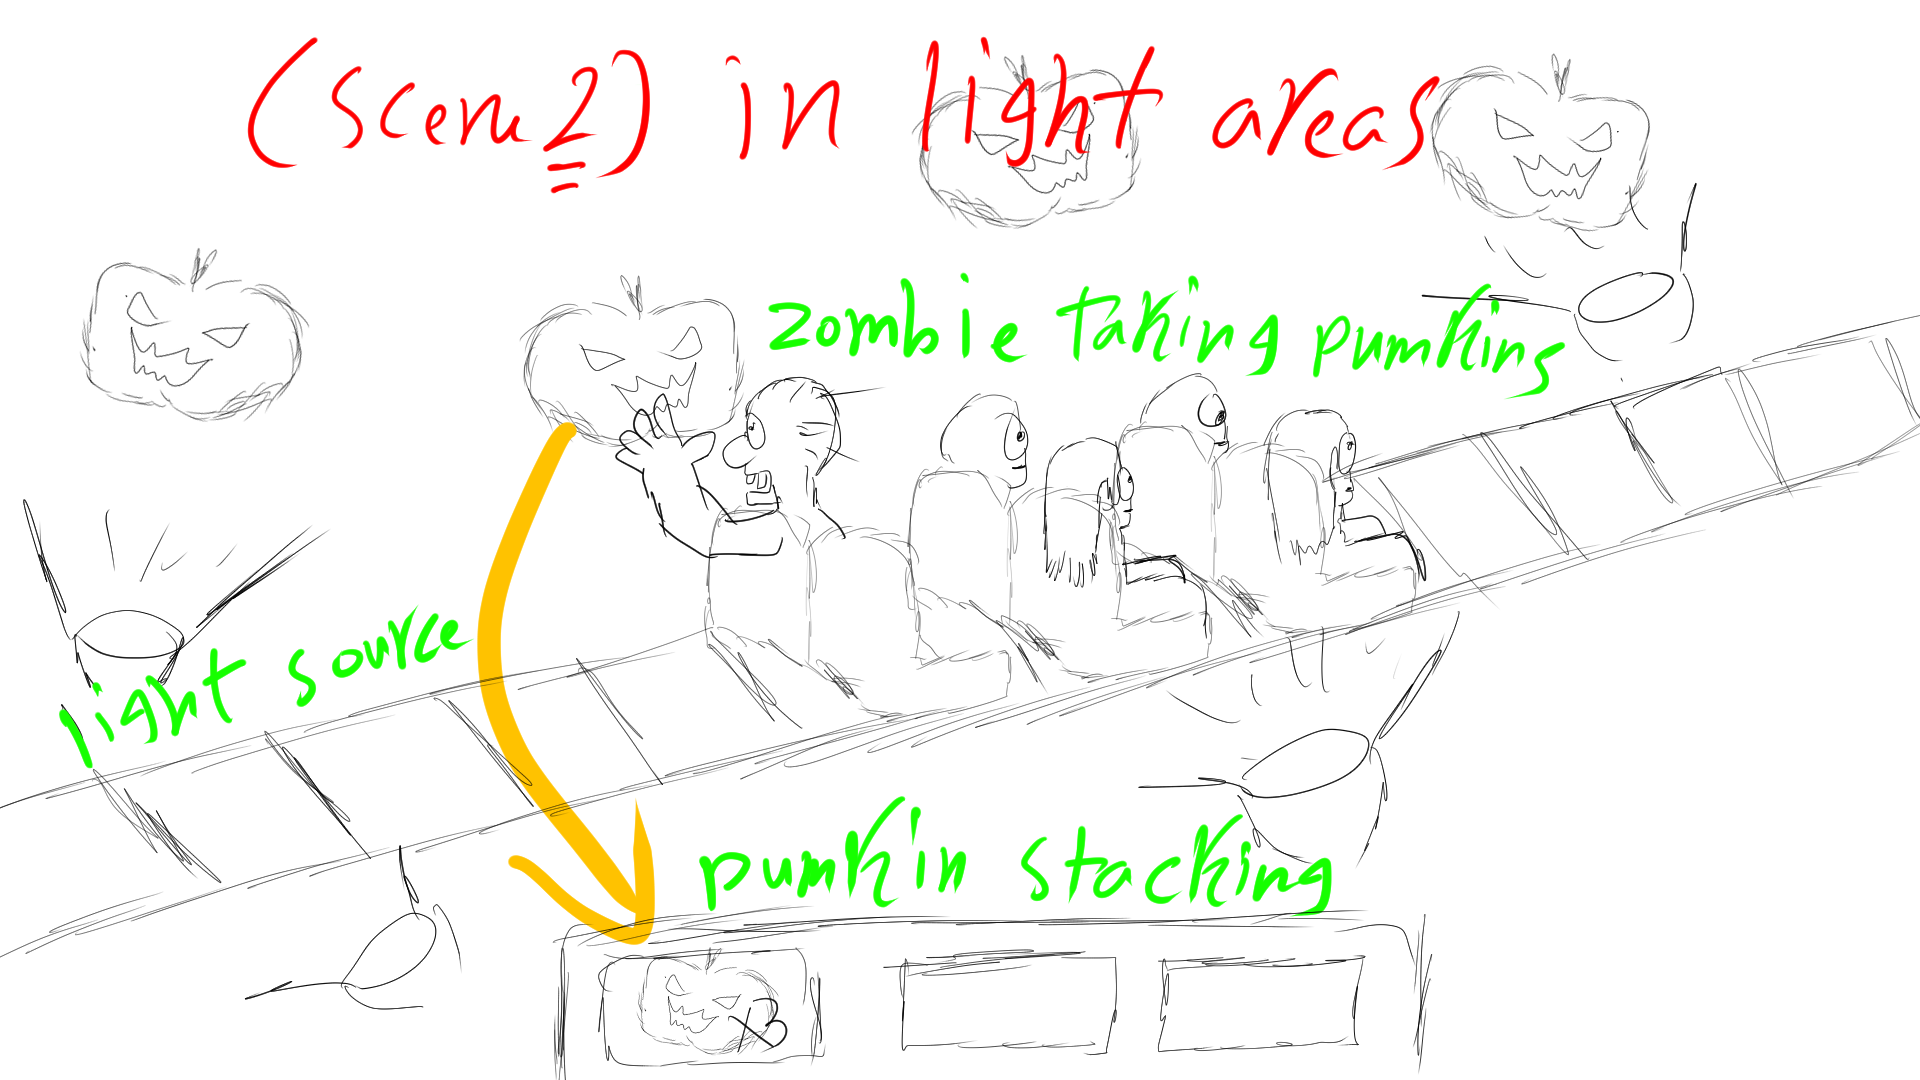 (scene 2) in light areas
zombie taking pumking
light source
pumkin stacking
x3